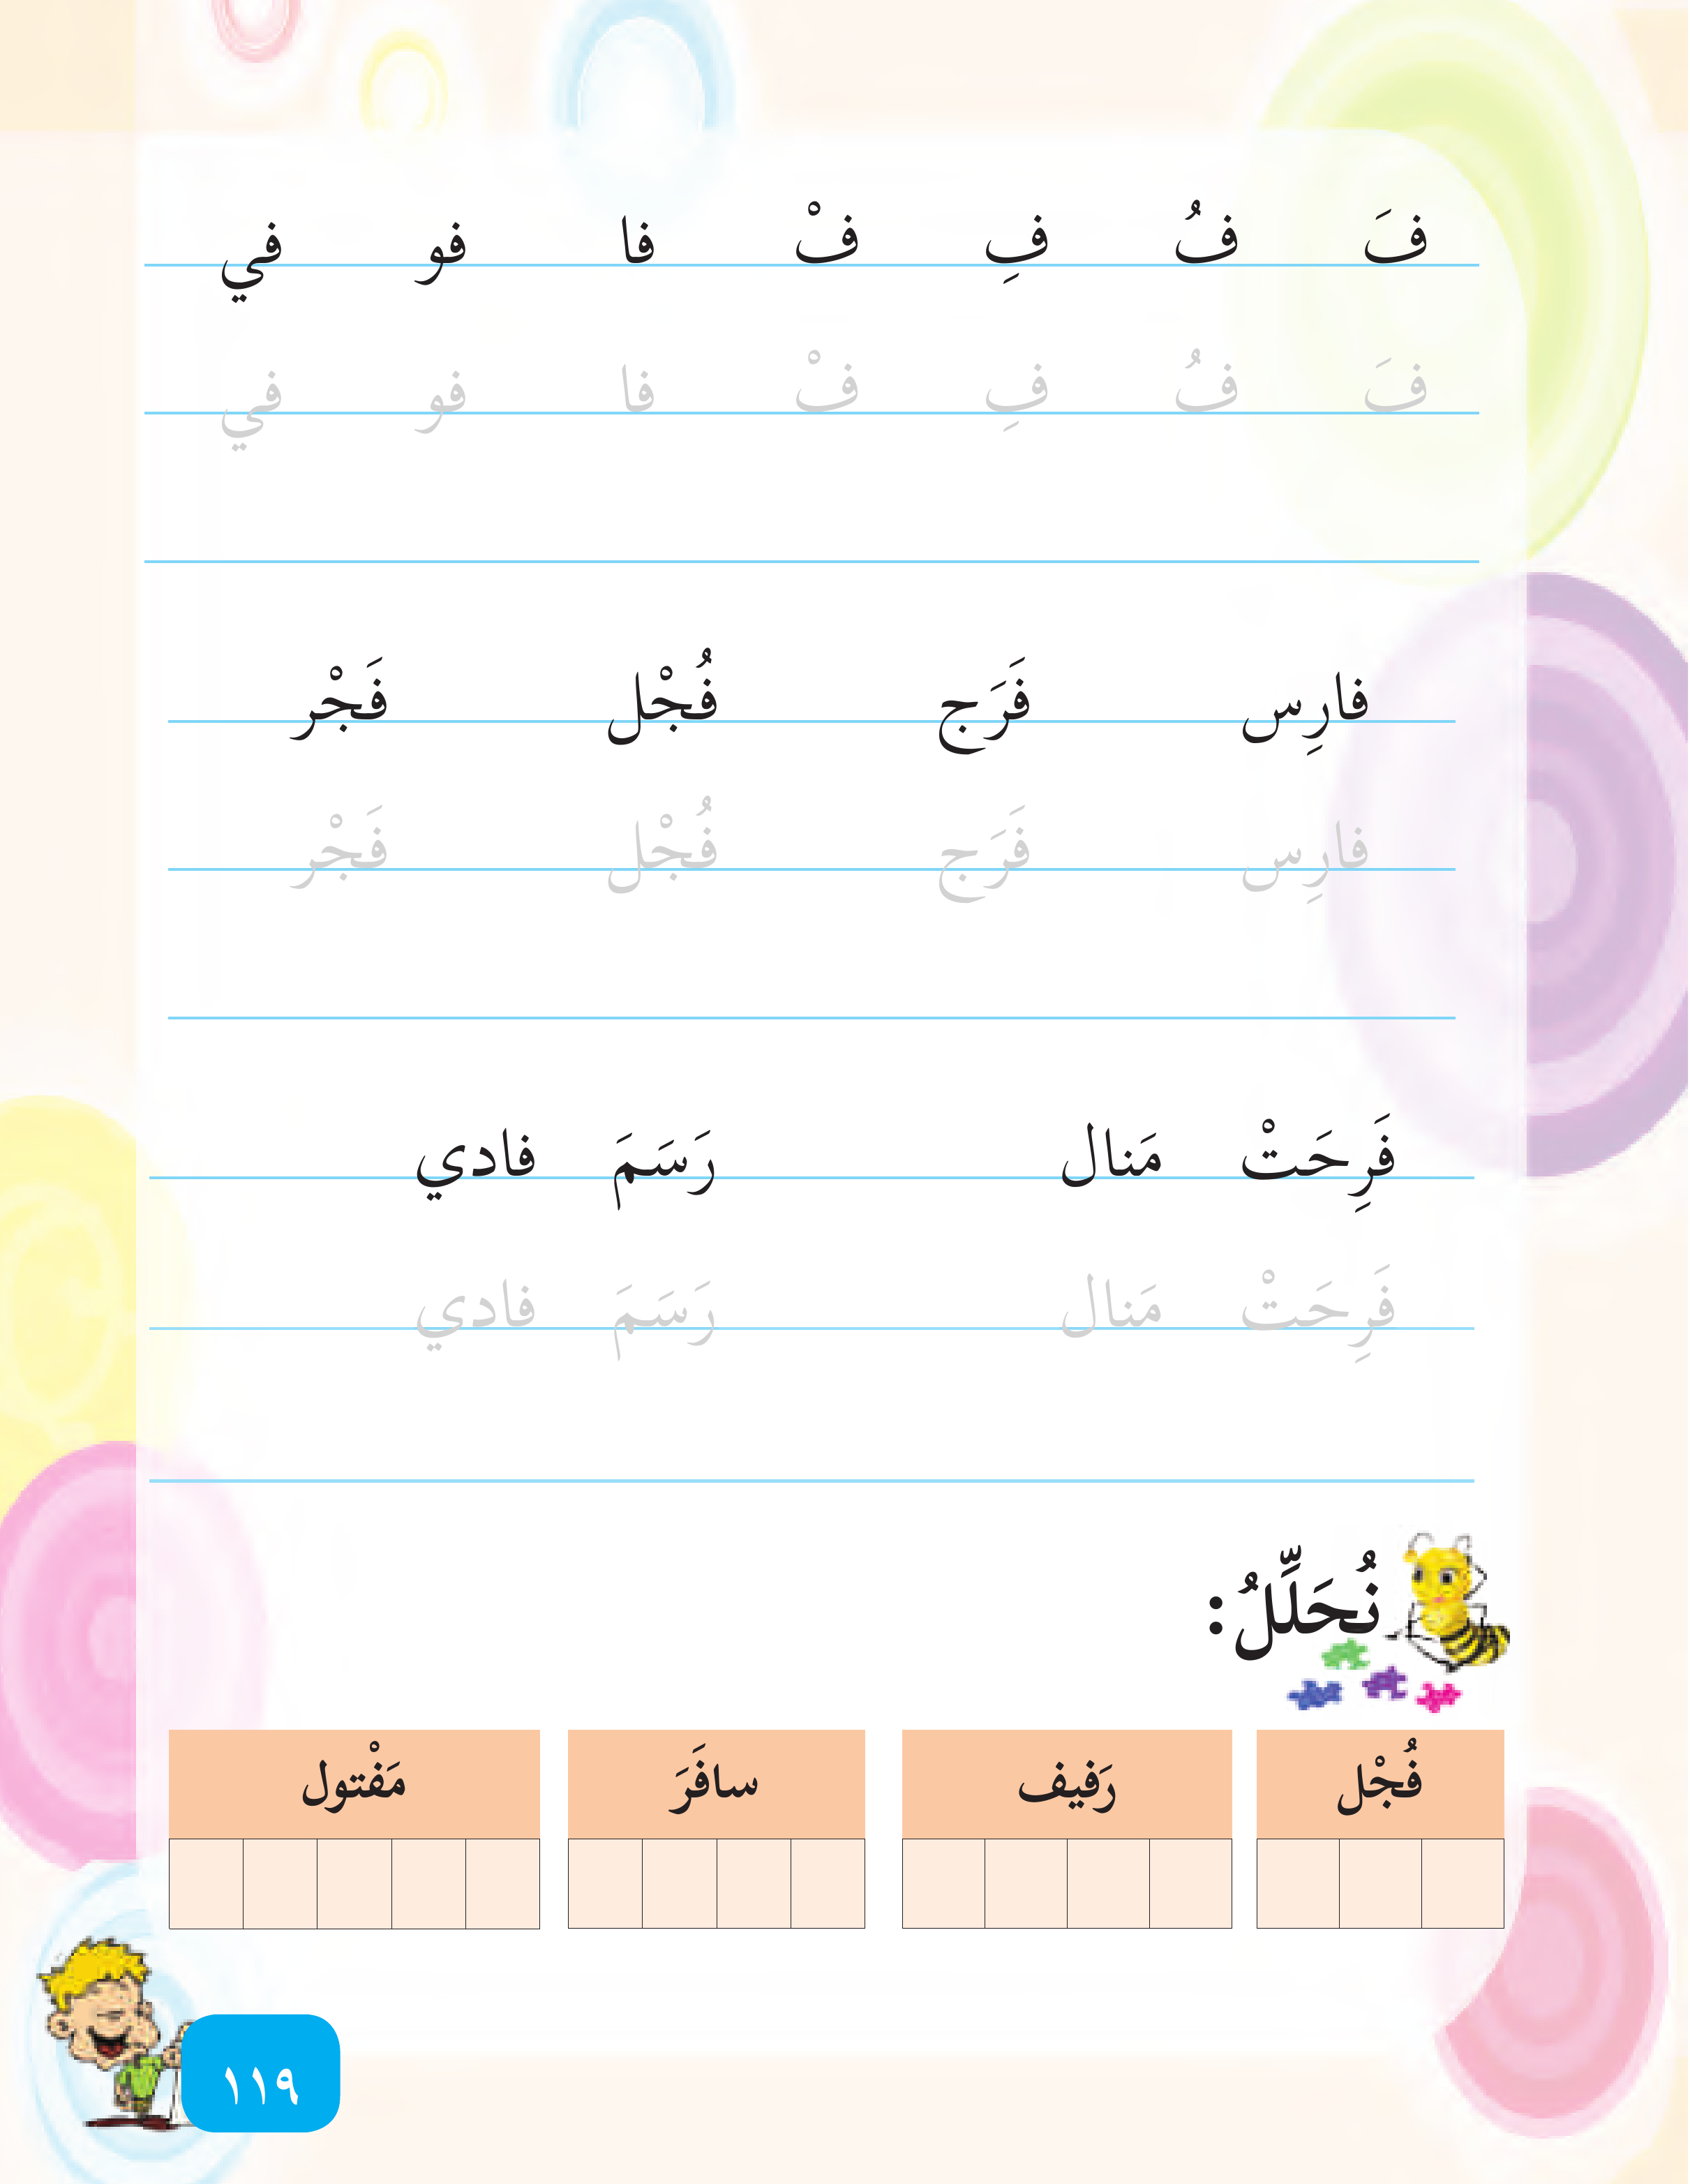 فَ فُ فِ فْ فا فو في
فَ فُ فِ فْ فا فو في
فارِس فَرَج فُجْل فَجْر
فارِس فَرَج فُجْل فَجْر
فَرِحَتْ مَنال رَسَمَ فادي
فَرِحَتْ مَنال رَسَمَ فادي
نُحَلِّلُ:
فُجْل رَفيف سافَرَ مَفْتول
١١٩